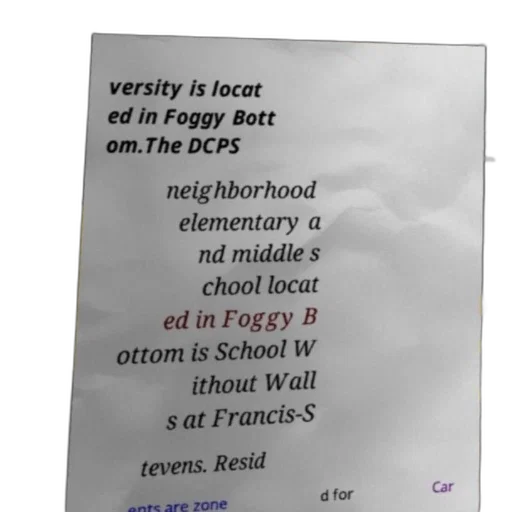 versity is locat
ed in Foggy Bott
om.The DCPS
neighborhood
elementary a
nd middle s
chool locat
ed in Foggy B
ottom is School W
ithout Wall
s at Francis-S
tevens. Resid
ents are zone d for Car